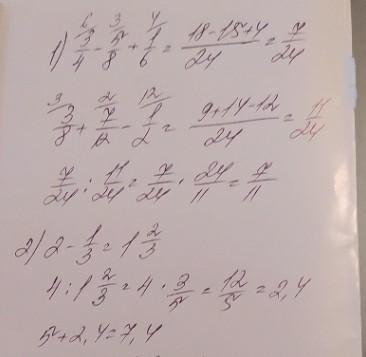 6 3 4
1) 3/4 - 5/8 + 1/6 = 18-15+4/24 = 7/24
3 2 12
3/8 + 7/12 - 1/2 = 9+14-12/24 = 11/24
7/24 : 11/24 = 7/24 · 24/11 = 7/11
2) 2 - 1/3 = 1 2/3
4 : 1 2/3 = 4 · 3/5 = 12/5 = 2,4
5+2,4=7,4